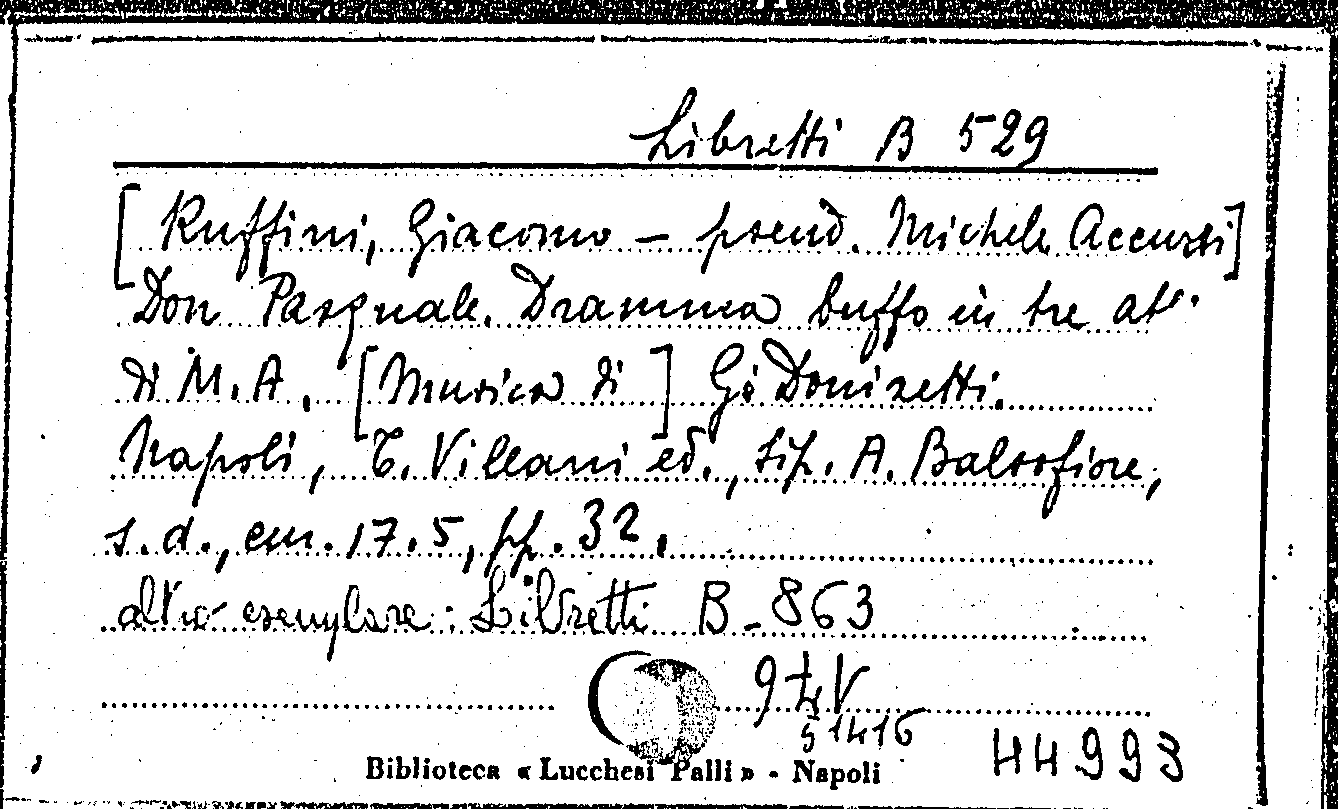 Libretti B 529
[Ruffini, Giacomo – pseud. Michele Accursi]
Don Pasquale. Dramma buffo in tre att.
di M. A. [Musica di] G. Donizetti.
Napoli, T. Villani ed., tip. A. Balsofiore,
s.d., cm. 17.5, pp. 32.
altro esemplare: Libretti B-863
51416
44993
Biblioteca « Lucchesi Palli » - Napoli